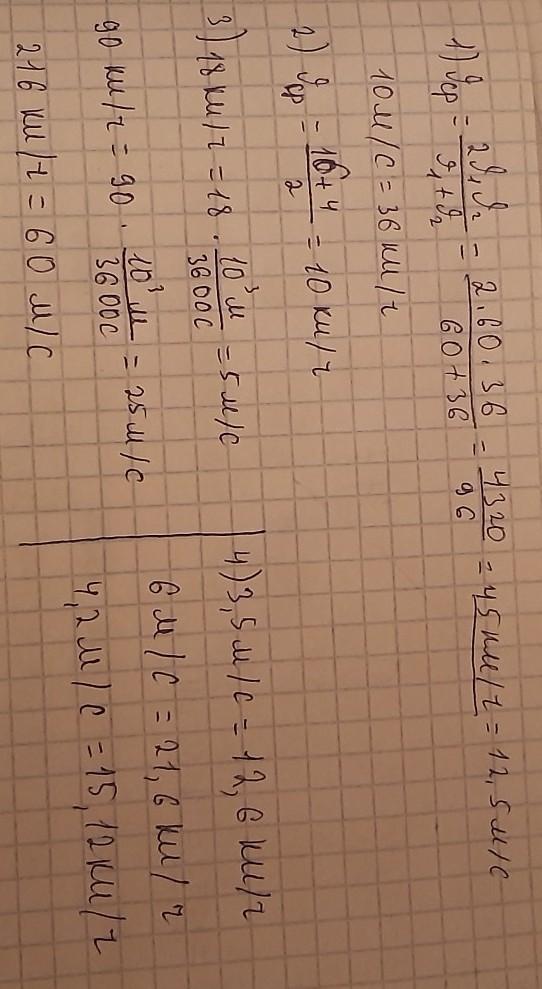 1) ϑср = 2ϑ₁ϑ₂ / ϑ₁+ϑ₂ = 2·60·36 / 60+36 = 4320 / 96 = 45 км/ч = 12,5 м/с
10 м/с = 36 км/ч
2) ϑср = 16+4 / 2 = 10 км/ч
3) 18 км/ч = 18 · 10³ м / 3600с = 5 м/с
90 км/ч = 90 · 10³ м / 3600с = 25 м/с
216 км/ч = 60 м/с
4) 3,5 м/с = 12,6 км/ч
6 м/с = 21,6 км/ч
4,2 м/с = 15,12 км/ч